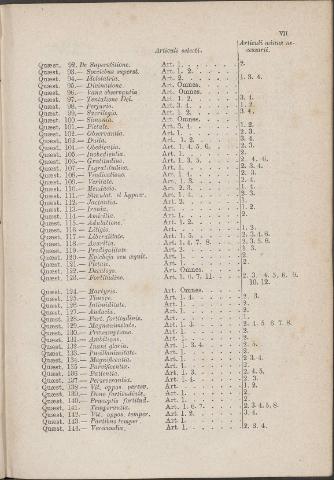 VII
Articuli selecti.
Articuli aditus ne-
cessarii.
Quæst. 92. De Superstitione. Art. 1. 2. 2.
Quæst. 93.— Speciebus superst. Art. 1. 2.
Quæst. 94.— Idololatria. Art. 2. 1. 3. 4.
Quæst. 95.— Divinatione. Art. Omnes.
Quæst. 96.— Vana observantia Art. Omnes.
Quæst. 97.— Tentatione Dei. Art. 1. 2. 3. 4.
Quæst. 98.— Perjurio. Art. 3. 4. 1. 2.
Quæst. 99.— Sacrilegio. Art. 1. 2. 3. 4.
Quæst. 100.— Simonia. Art. Omnes.
Quæst. 101.— Pietate. Art. 3. 4. 1. 2.
Quæst. 102.— Observantia. Art. 1. 2. 3.
Quæst. 103.— Dulia. Art. 1. 2. 3. 4.
Quæst. 104.— Obedientia. Art. 1. 4. 5. 6. 2. 3.
Quæst. 105.— Inobedientia. Art. 1. 2.
Quæst. 106.— Gratitudine. Art. 1. 3. 5. 2. 4. 6.
Quæst. 107.— Ingratitudine. Art. 1. 2. 3. 4.
Quæst. 108.— Vindicatione. Art. 1. 4. 2. 3.
Quæst. 109.— Veritate. Art. 1. 3. 2. 4.
Quæst. 110.— Mendacio. Art. 2. 3. 1. 4.
Quæst. 111.— Simulat. et hypocr. Art. 1. 2. 3.
Quæst. 112.— Jactantia. Art. 2. 1.
Quæst. 113.— Ironia. Art. 1. 2.
Quæst. 114.— Amicitia. Art. 1. 2.
Quæst. 115.— Adulatione. Art. 1. 2.
Quæst. 116.— Litigio. Art. 1. 2.
Quæst. 117.— Liberalitate. Art. 1. 5. 2. 3. 4. 6.
Quæst. 118.— Avaritia. Art. 1. 4. 7. 8. 2. 3. 5. 6.
Quæst. 119.— Prodigalitate Art. 2. 1. 3.
Quæst. 120.— Epicheja seu æquit. Art. 1. 2.
Quæst. 121.— Pietate. Art. 1. 2.
Quæst. 122.— Decalogo. Art. Omnes.
Quæst. 123.— Fortitudine. Art. 1. 6. 7. 11. 2. 3. 4. 5. 8. 9.
10. 12.
Quæst. 124.— Martyrio. Art. Omnes.
Quæst. 125.— Timore. Art. 1. 4. 2. 3.
Quæst. 126.— Intimiditate. Art. 1. 2.
Quæst. 127.— Audacia. Art. 1. 2.
Quæst. 128.— Part. fortitudinis. Art. 1.
Quæst. 129.— Magnanimitate. Art. 1. 3. 2. 4. 5. 6. 7. 8.
Quæst. 130.— Præsumptione. Art. 1. 2.
Quæst. 131.— Ambitione. Art. 1. 2.
Quæst. 132.— Inani gloria. Art. 1. 3. 4. 2. 5.
Quæst. 133.— Pusillanimitate. Art. 1. 2.
Quæst. 134.— Magnificentia. Art. 1. 2. 3. 4.
Quæst. 135.— Parvificentia. Art. 1. 2.
Quæst. 136.— Patientia. Art. 1. 3. 2. 4. 5.
Quæst. 137.— Perseverantia. Art. 1. 4. 2. 3.
Quæst. 138.— Vit. oppos. persev. Art. 1. 2.
Quæst. 139.— Dono fortitudinis. Art. 1. 2.
Quæst. 140.— Præceptis fortitud. Art. 1. 2.
Quæst. 141.— Temperantia. Art. 1. 6. 7. 2. 3. 4. 5. 8.
Quæst. 142.— Vit. oppos. temper. Art. 1. 2. 3. 4.
Quæst. 143.— Partibus temper Art. 1.
Quæst. 144.— Verecundia. Art. 1. 2. 3. 4.